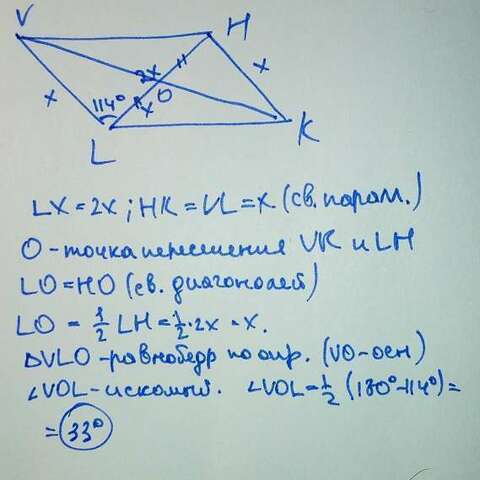 V H
2x x
x 114° x O
L K
LX = 2x ; HK = VL = x (св. парал.)
O - точка пересшения VK и LH
LO = HO (св. диагоналей)
LO = 1/2 LH = 1/2 · 2x = x.
△VLO - равнобедр по опр. (VO - осн)
∠VOL - искомый. ∠VOL = 1/2 (180° - 114°) =
= 33°